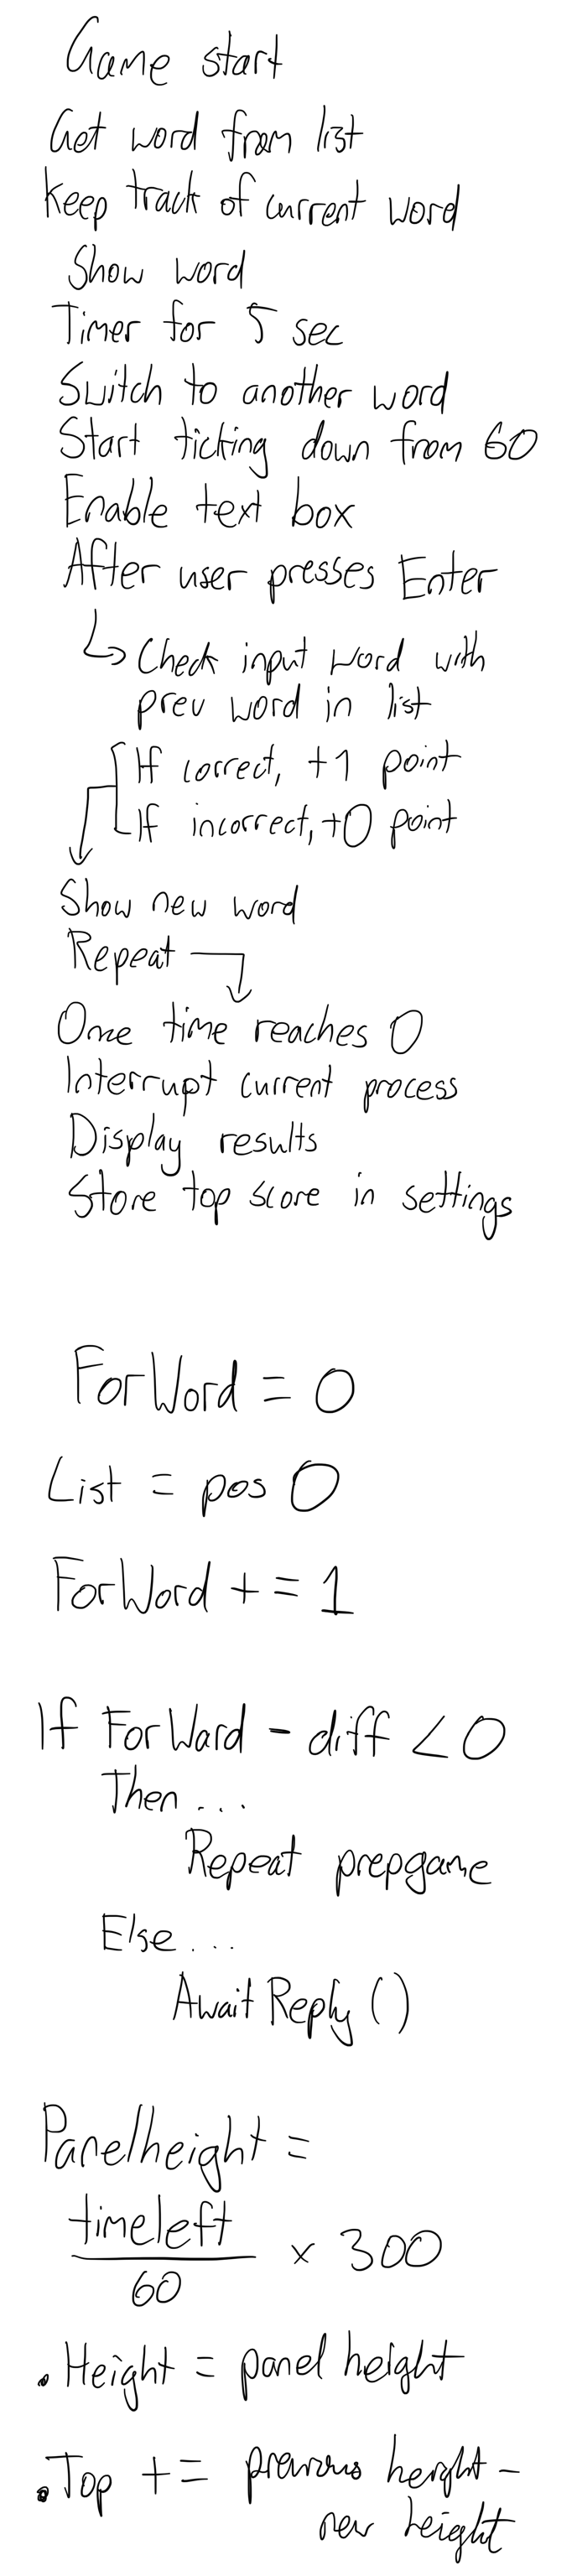 Game start
Get word from list
Keep track of current word
Show word
Timer for 5 sec
Switch to another word
Start ticking down from 60
Enable text box
After user presses Enter
Check input word with
prev word in list
If correct, +1 point
If incorrect, +0 point
Show new word
Repeat
Once time reaches 0
Interrupt current process
Display results
Store top score in settings
ForWord = 0
List = pos 0
ForWord += 1
If ForWord - diff < 0
Then...
Repeat prepgame
Else...
AwaitReply()
Panelheight =
timeleft
60
× 300
.Height = panel height
.Top += previous height -
new height